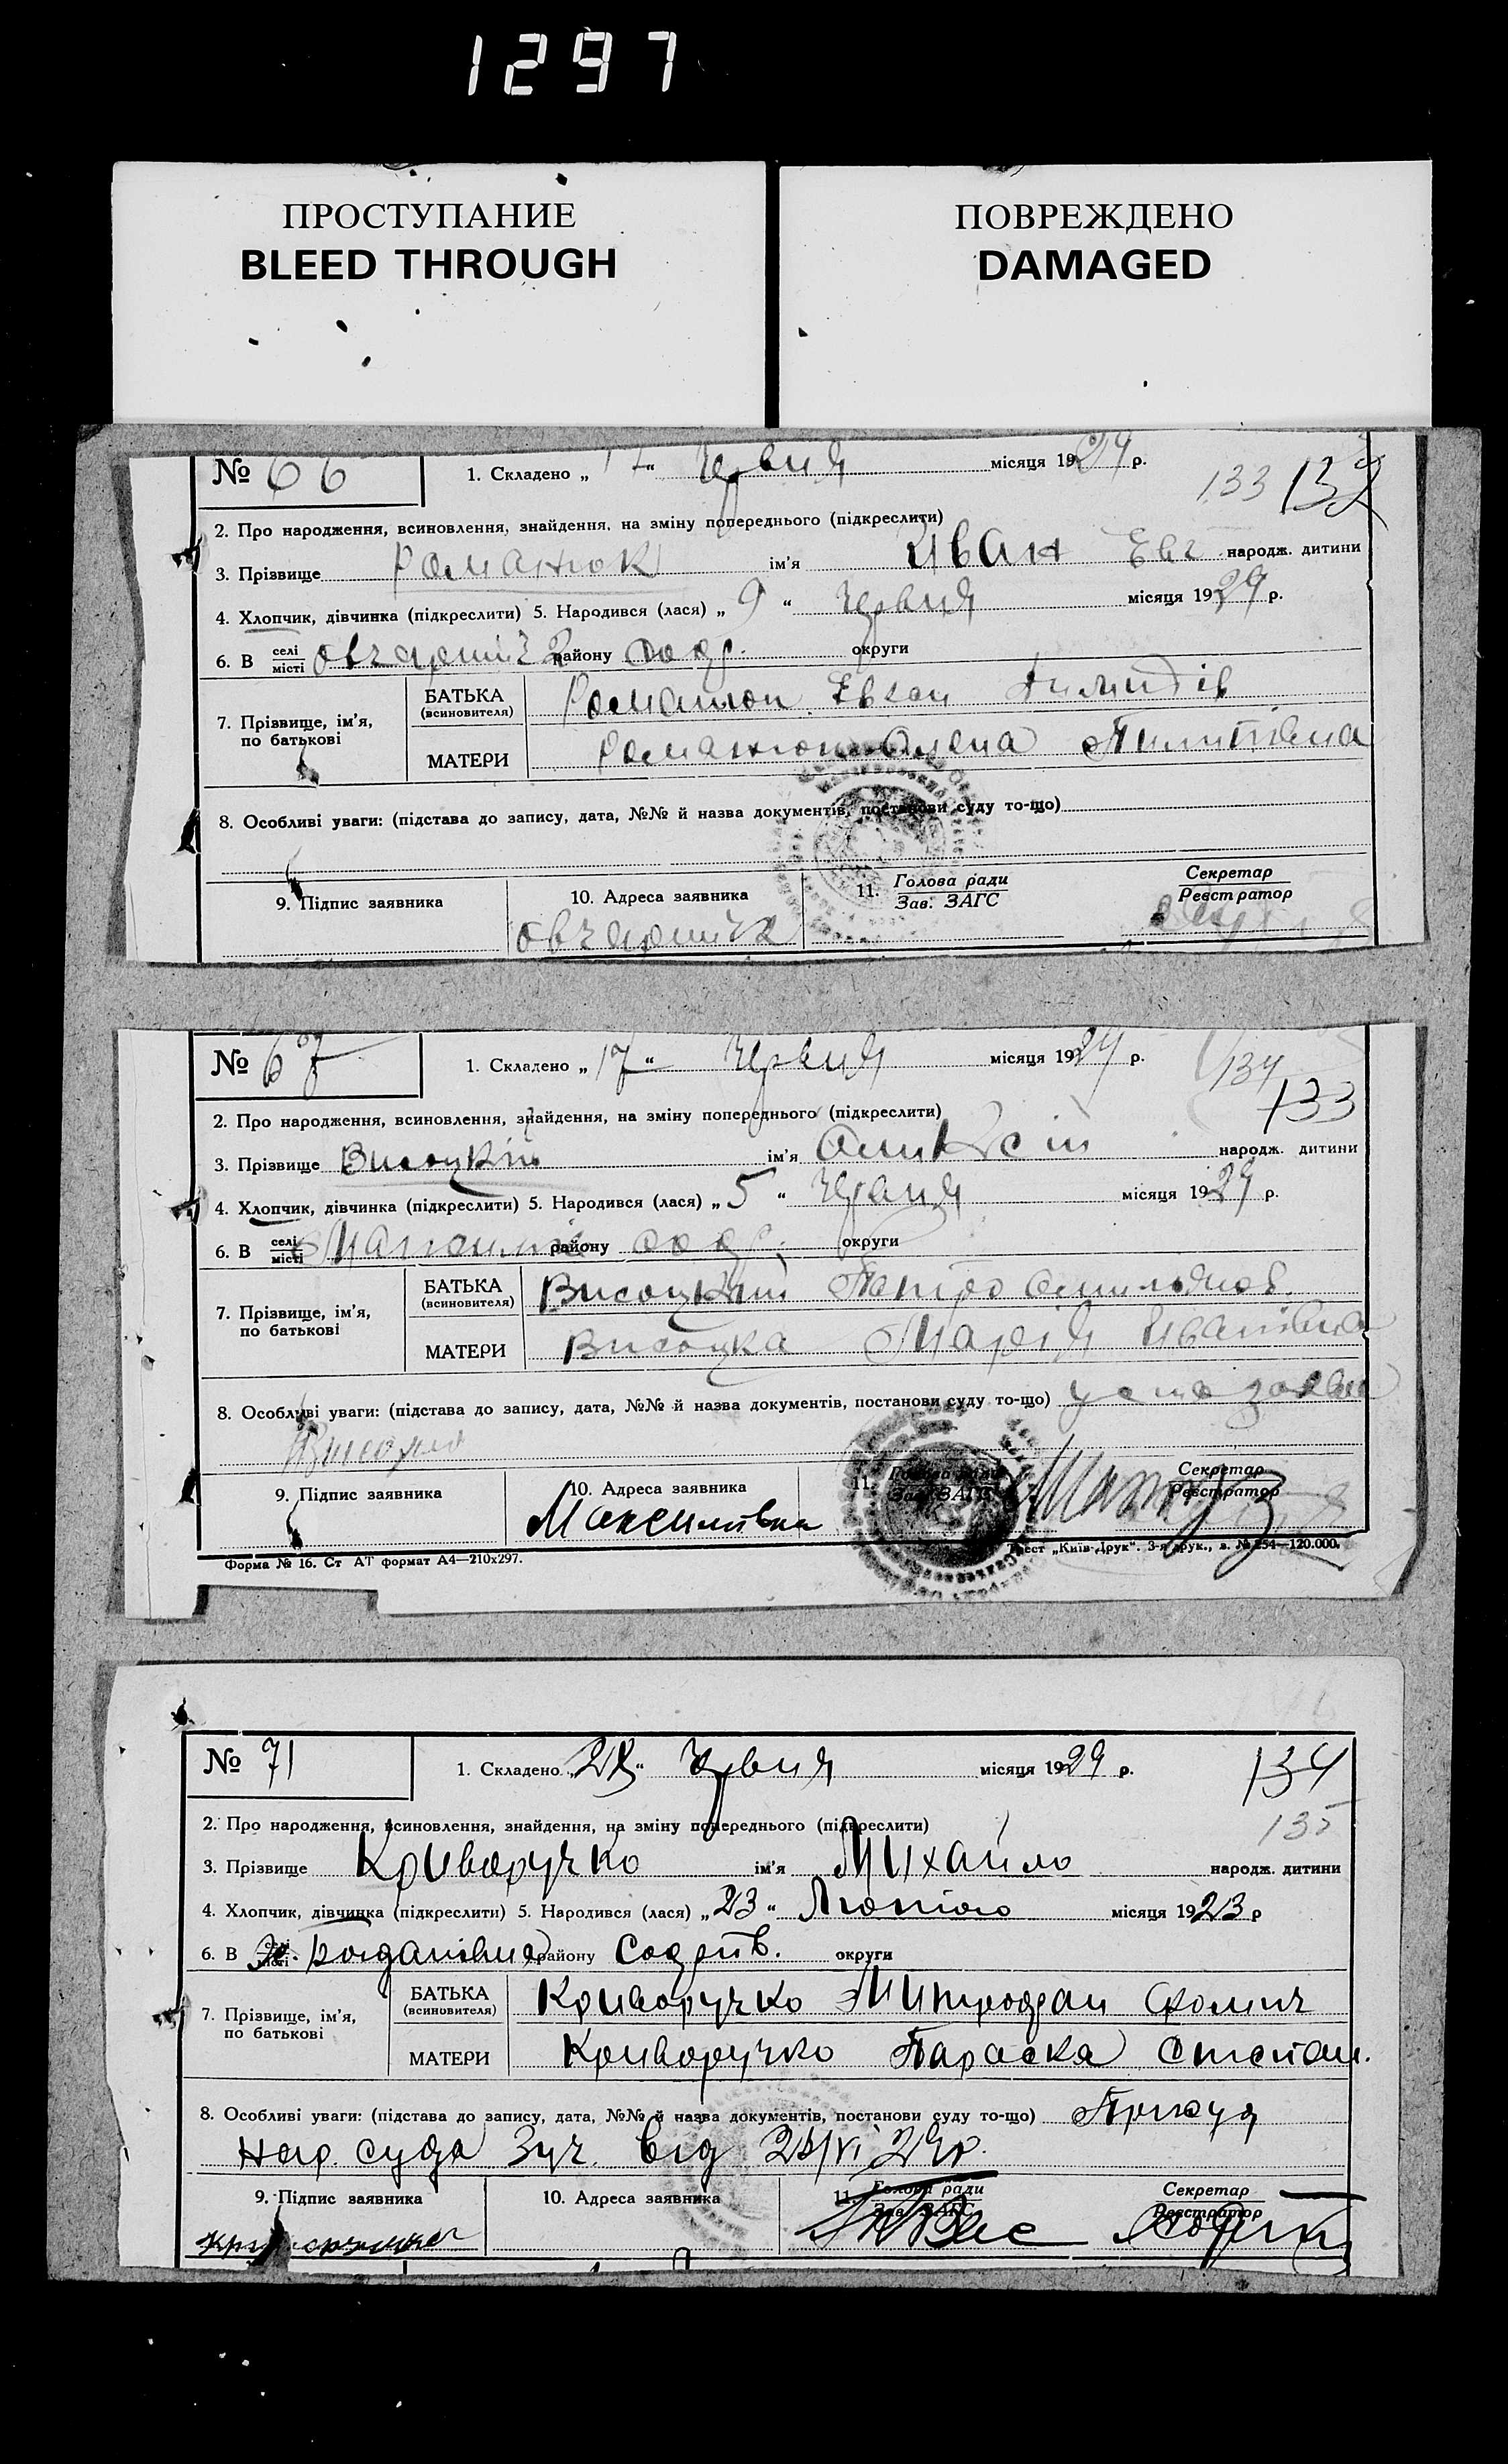 1297
ПРОСТУПАНИЕ
BLEED THROUGH
ПОВРЕЖДЕНО
DAMAGED
№ 66 1. Складено „17“ Червня місяця 1929 р.
133 132
2. Про народження, всиновлення, знайдення, на зміну попереднього (підкреслити)
3. Прізвище Романюк ім'я Иван Евг народж. дитини
4. Хлопчик, дівчинка (підкреслити) 5. Народився (лася) „9“ Червня місяця 1929 р.
6. В селі місті району округи
7. Прізвище, ім'я, по батькові
БАТЬКА (всиновителя) Романюк Евген
МАТЕРИ Романюк Олена Пилипівна
8. Особливі уваги: (підстава до запису, дата, №№ й назва документів, постанови суду то-що)
9. Підпис заявника 10. Адреса заявника 11. Голова ради Зав. ЗАГС Секретар Реєстратор
№ 67 1. Складено „17“ Червня місяця 1929 р.
134
133
2. Про народження, всиновлення, знайдення, на зміну попереднього (підкреслити)
3. Прізвище Висоцкий ім'я Оликсій народж. дитини
4. Хлопчик, дівчинка (підкреслити) 5. Народився (лася) „5“ Червня місяця 1929 р.
6. В селі місті району округи
7. Прізвище, ім'я, по батькові
БАТЬКА (всиновителя) Висоцкий Петро Омильянов.
МАТЕРИ Висоцка Марія Иванівна
8. Особливі уваги: (підстава до запису, дата, №№ й назва документів, постанови суду то-що)
9. Підпис заявника 10. Адреса заявника 11. Голова ради Зав. ЗАГС Секретар Реєстратор
Максимівка
Форма № 16. Ст АТ формат А4—210х297. Трест „Київ-Друк“. 3-я друк., з. № 254—120.000.
№ 71 1. Складено „28“ Червня місяця 1929 р.
134
135
2. Про народження, всиновлення, знайдення, на зміну попереднього (підкреслити)
3. Прізвище Криворучко ім'я Михайло народж. дитини
4. Хлопчик, дівчинка (підкреслити) 5. Народився (лася) „23“ Лютого місяця 1923 р
6. В селі місті Богданівка району округи
7. Прізвище, ім'я, по батькові
БАТЬКА (всиновителя) Криворучко Митрофан Фомич
МАТЕРИ Криворучко Параска Степан.
8. Особливі уваги: (підстава до запису, дата, №№ й назва документів, постанови суду то-що) Присуд
Нар. суда від VI 29р.
9. Підпис заявника 10. Адреса заявника 11. Голова ради Зав. ЗАГС Секретар Реєстратор